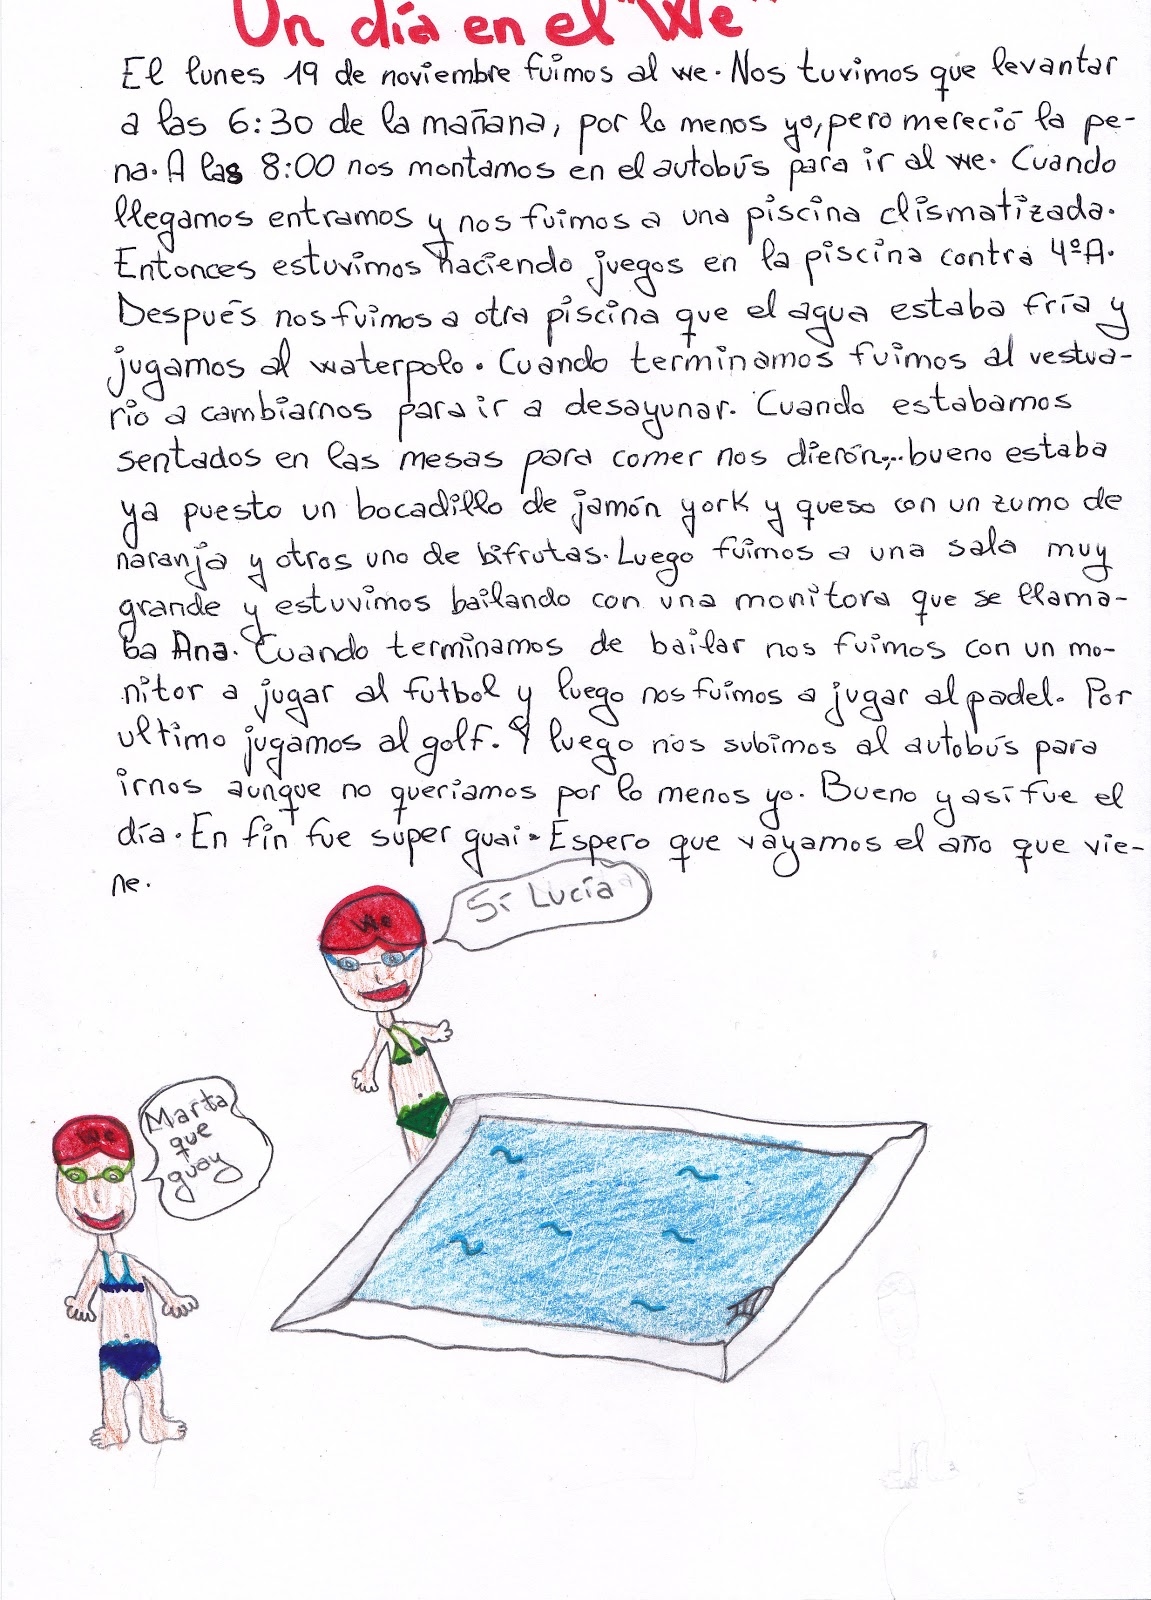 Un día en el "We"
El lunes 19 de noviembre fuimos al we. Nos tuvimos que levantar
a las 6:30 de la mañana, por lo menos yo, pero mereció la pe-
na. A las 8:00 nos montamos en el autobús para ir al we. Cuando
llegamos entramos y nos fuimos a una piscina clismatizada.
Entonces estuvimos haciendo juegos en la piscina contra 4ºA.
Después nos fuimos a otra piscina que el agua estaba fría y
jugamos al waterpolo. Cuando terminamos fuimos al vestua-
rio a cambiarnos para ir a desayunar. Cuando estabamos
sentados en las mesas para comer nos dierón,... bueno estaba
ya puesto un bocadillo de jamón york y queso con un zumo de
naranja y otros uno de bifrutas. Luego fuimos a una sala muy
grande y estuvimos bailando con una monitora que se llama-
ba Ana. Cuando terminamos de bailar nos fuimos con un mo-
nitor a jugar al futbol y luego nos fuimos a jugar al padel. Por
ultimo jugamos al golf. Y luego nos subimos al autobús para
irnos aunque no queriamos por lo menos yo. Bueno y así fue el
día. En fin fue super guai. Espero que vayamos el año que vie-
ne.
We
Sí Lucía
We
Marta
que
guay